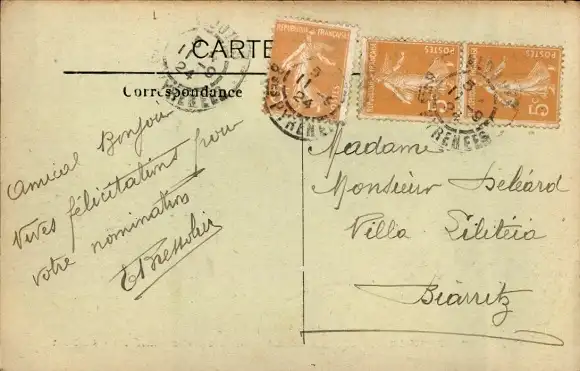 CARTE
Correspondance
REPUBLIQUE FRANÇAISE
POSTES
5c
POSTES
5c
PYRENEES
Amical Bonjour
Vives félicitations pour
votre nomination
Madame
Monsieur
Villa
Biarritz